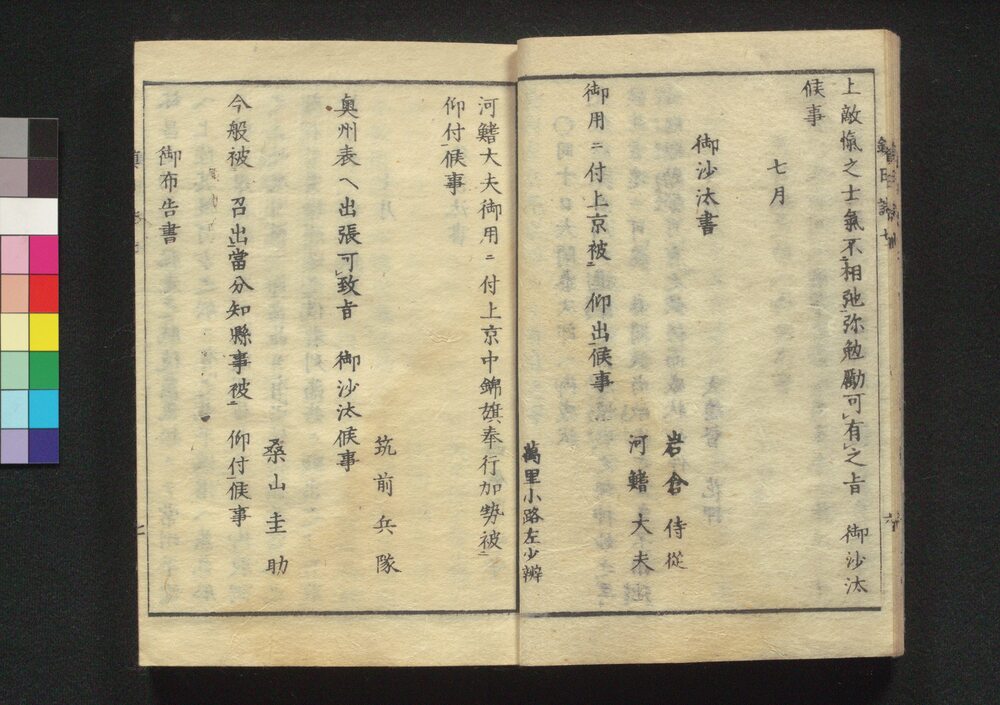 上敵愾之士氣不二相弛一弥勉勵可レ有レ之旨　御沙汰
候事
七月
御沙汰書
岩倉侍從
河鰭大夫
御用ニ付上京被二　仰出一候事
萬里小路左少辨
河鰭大夫御用ニ付上京中錦旗奉行加勢被二
仰付一候事
筑前兵隊
奥州表ヘ出張可レ致旨　御沙汰候事
桑山圭助
今般被二　召出一當分知縣事被二　仰付一候事
御布告書